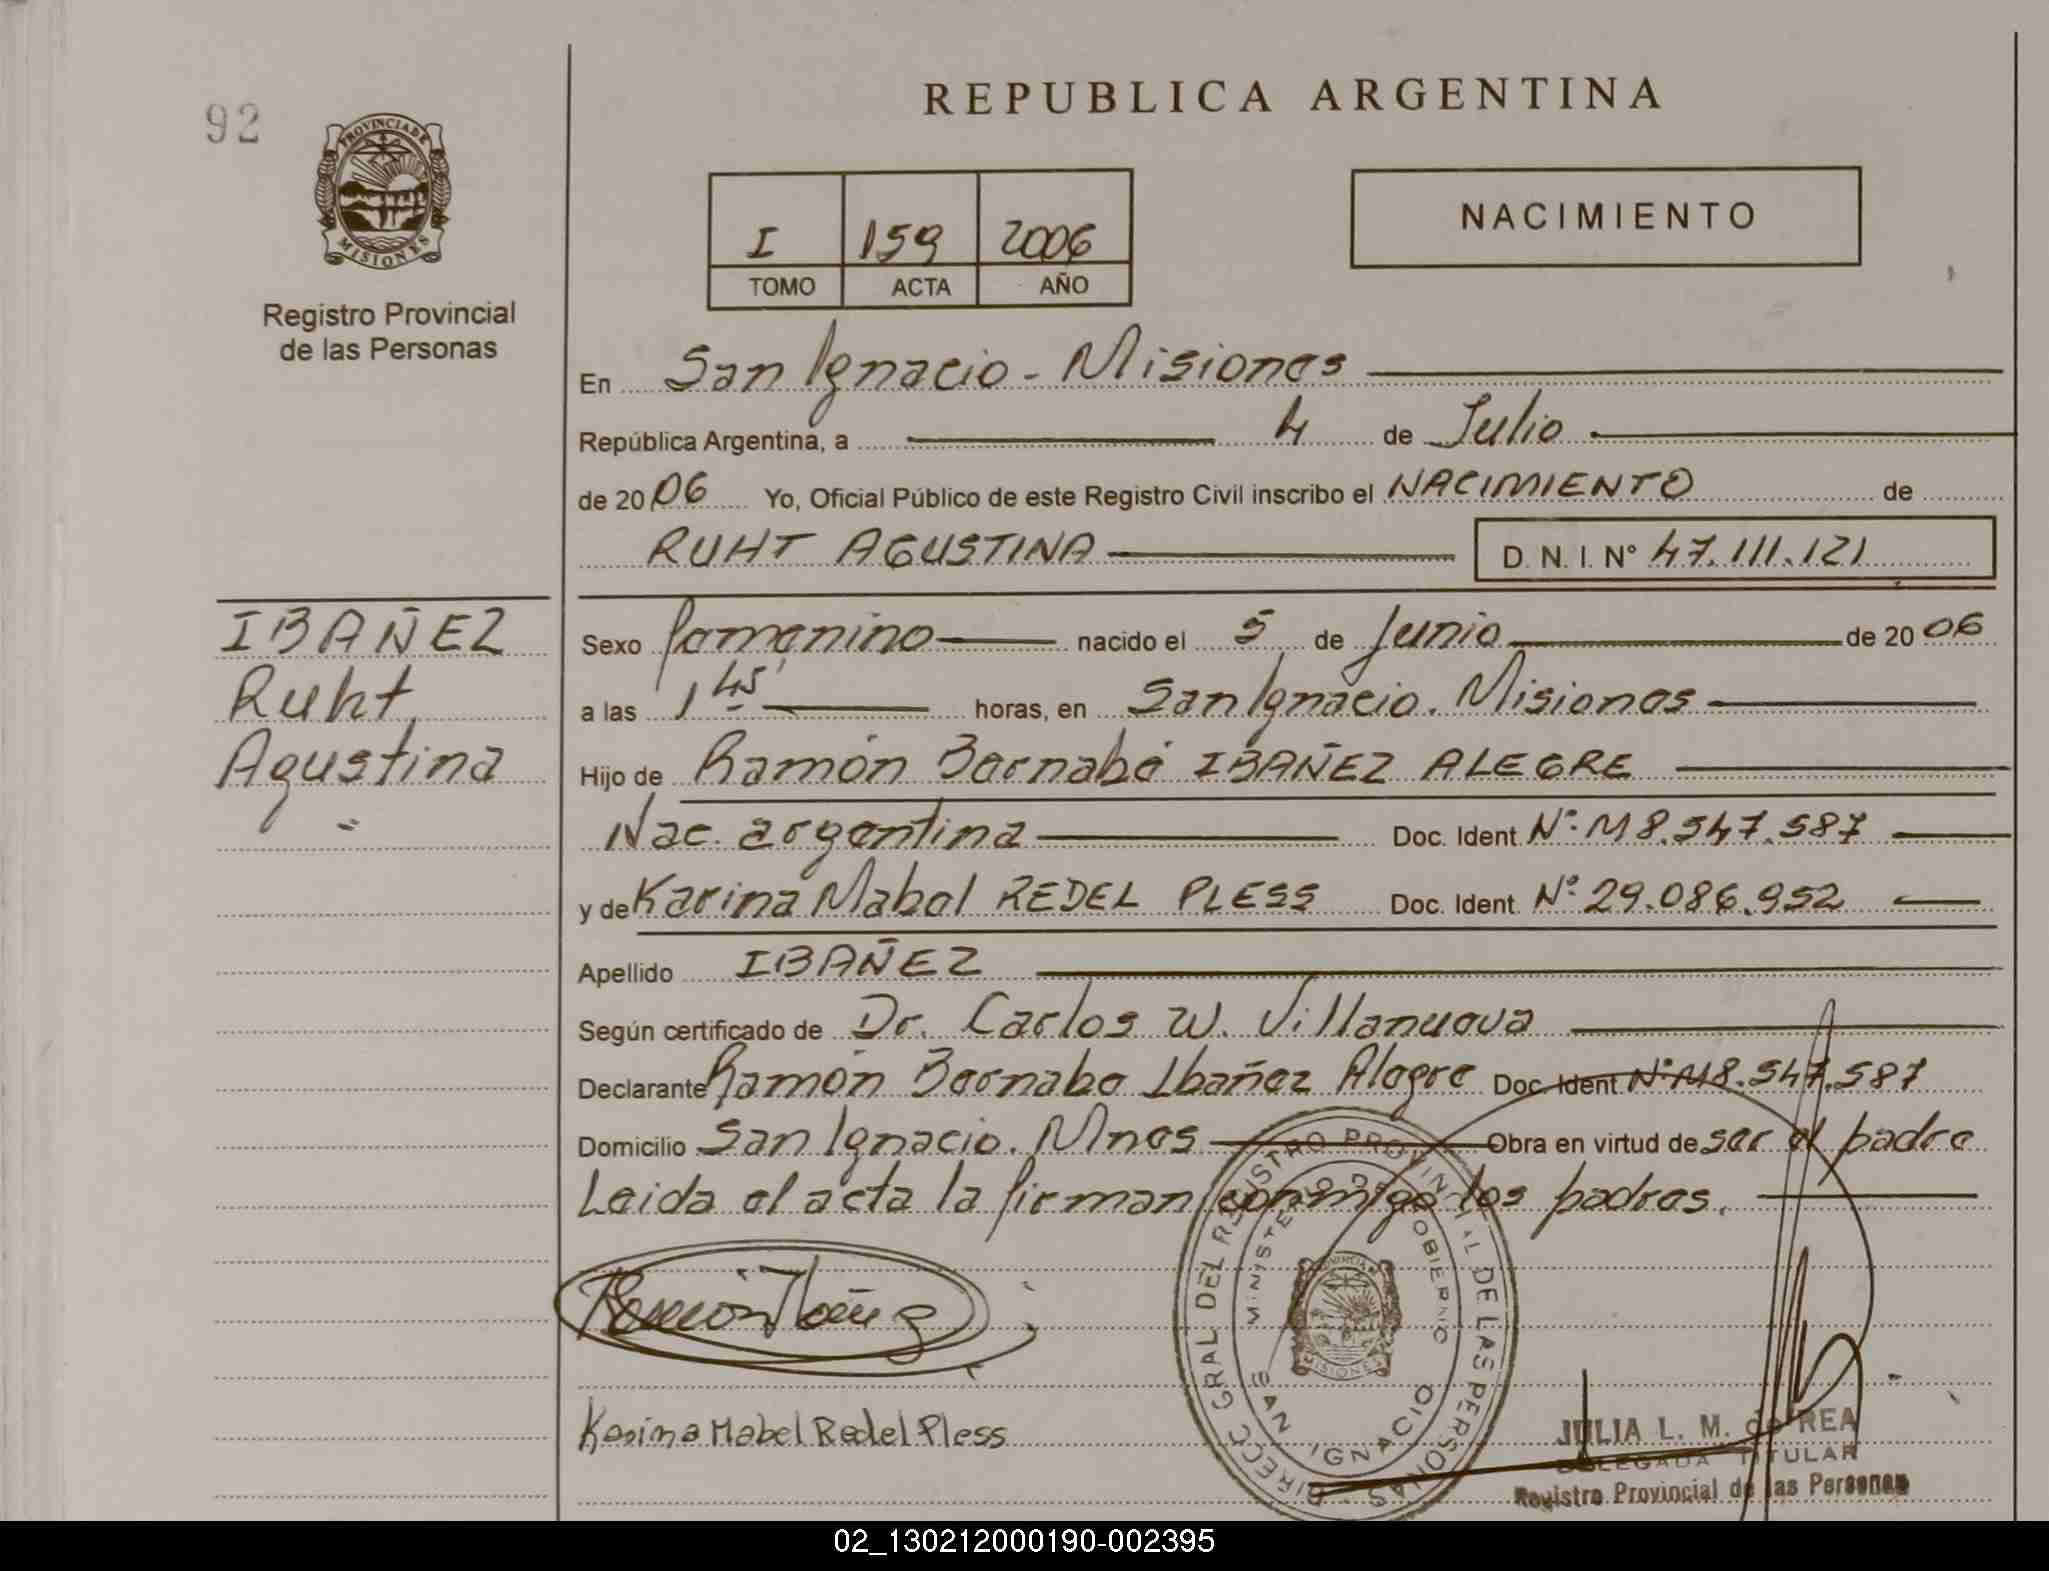 92
PROVINCIA DE
MISIONES
Registro Provincial
de las Personas
REPUBLICA ARGENTINA
I 159 2006
TOMO ACTA AÑO
NACIMIENTO
En San Ignacio - Misiones
República Argentina, a 4 de Julio
de 2006 Yo, Oficial Público de este Registro Civil inscribo el NACIMIENTO de
RUHT AGUSTINA D. N. I. N° 47.111.121
IBAÑEZ
Ruht
Agustina
Sexo femenino nacido el 5 de Junio de 2006
a las 1 45' horas, en San Ignacio. Misiones
Hijo de Ramón Bernabé IBAÑEZ ALEGRE
Nac. argentina Doc. Ident. N°. M8.547.587
y de Karina Mabel REDEL PLESS Doc. Ident. N°. 29.086.952
Apellido IBAÑEZ
Según certificado de Dr. Carlos W. Villanueva
Declarante Ramón Bernabe Ibañez Alegre Doc. Ident. N°. M8.547.587
Domicilio San Ignacio. Mnes Obra en virtud de ser el padre
Leida el acta la firman conmigo los padres.
Ramón Ibañez
Karina Mabel Redel Pless
DIRECC GRAL DEL REGISTRO PROVINCIAL DE LAS PERSONAS
MINISTERIO DE GOBIERNO
SAN IGNACIO
PROVINCIA
MISIONES
JULIA L. M. de REA
DELEGADA TITULAR
Registro Provincial de las Personas
02_130212000190-002395